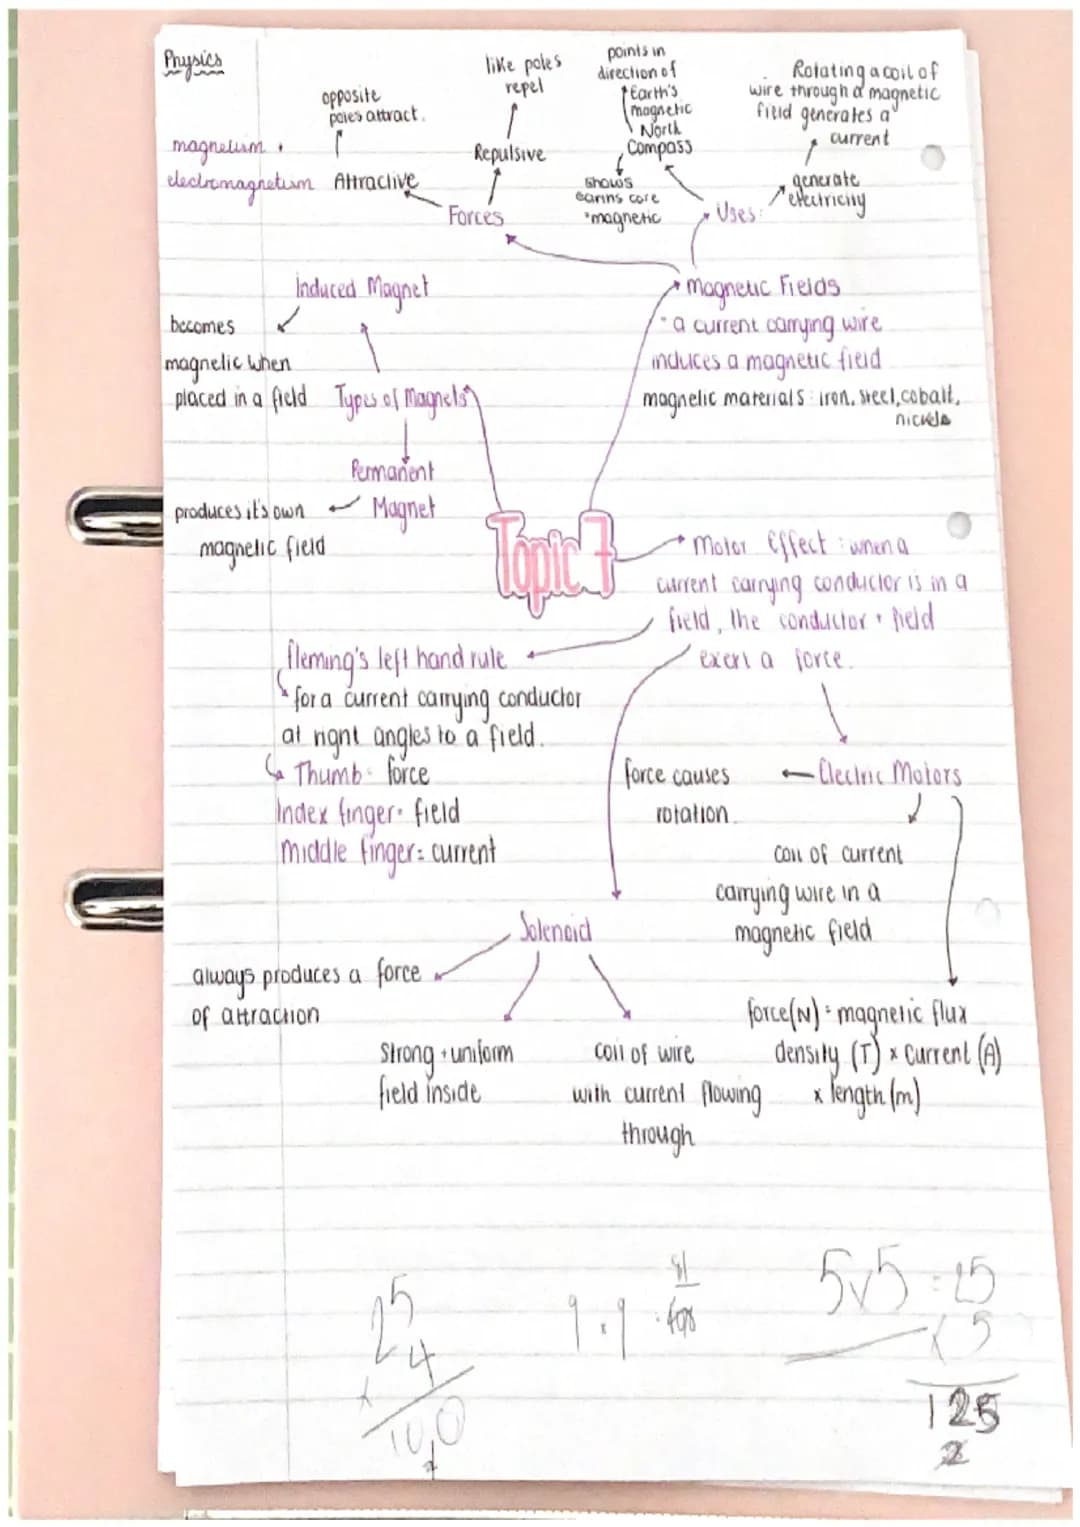 Physics
magnetism +
electromagnetism
opposite
poles attract.
Attractive
like poles
repel
Repulsive
Forces
points in
direction of
Earth's
magnetic
North
Compass
shows
earths core
magnetic
Rotating a coil of
wire through a magnetic
field generates a
current
generate
electricity
Uses:
Magnetic Fields
- a current carrying wire
induces a magnetic field
magnetic materials: iron, steel, cobalt,
Induced Magnet
becomes
magnetic when
placed in a field
Types of Magnets
Permanent
Magnet
produces it's own
magnetic field
Topic 7
Motor Effect: when a
current carrying conductor is in a
field, the conductor + field
exert a force.
fleming's left hand rule
for a current carrying conductor
at right angles to a field.
Thumb = force
Index finger = field
Middle finger = current
Electric Motors
force causes
rotation
coil of current
carrying wire in a
magnetic field
force(N) = magnetic flux
density (T) × current (A)
× length (m)
Solenoid
always produces a force
of attraction
Strong + uniform
field inside
coil of wire
with current flowing
through
25
× 4
100
9 × 9
81
5×5 = 25
× 5
125
2